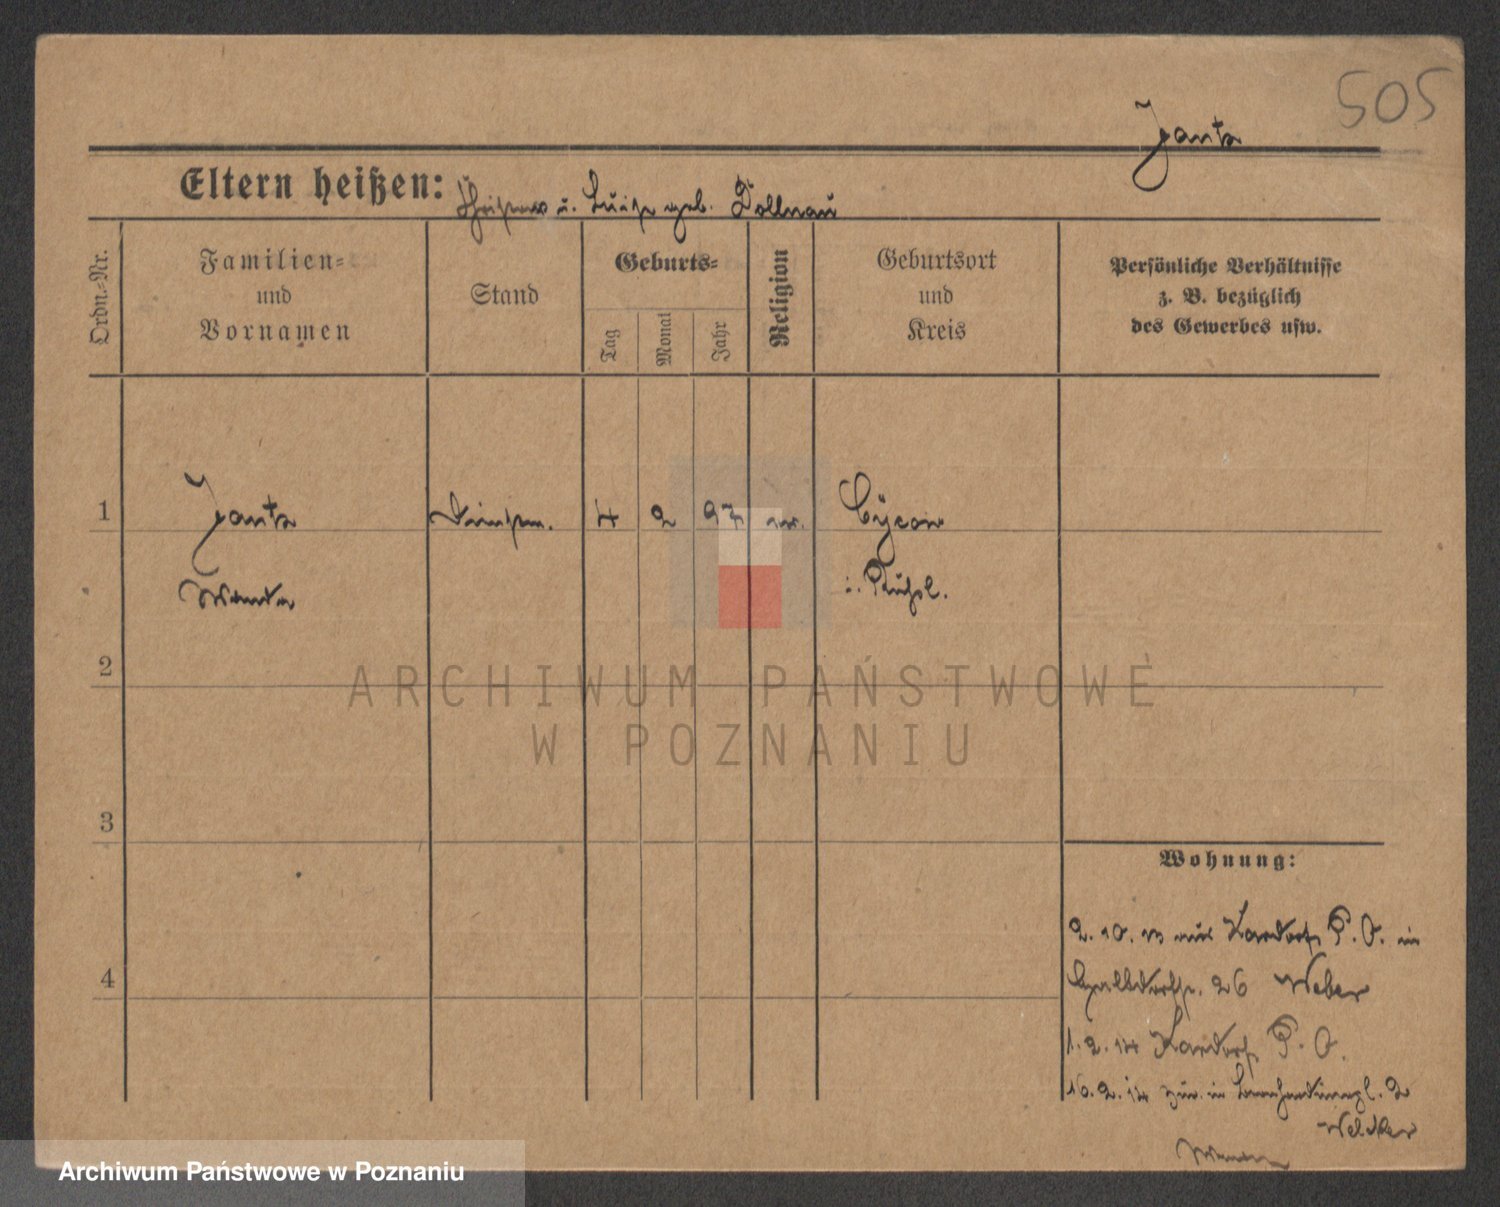 505
Jantz
Eltern heißen: u. Luise geb. Dollnau
Ordn.-Nr.
Familien-
und
Vornamen
Stand
Geburts-
Tag
Monat
Jahr
Religion
Geburtsort
und
Kreis
Persönliche Verhältnisse
z. B. bezüglich
des Gewerbes usw.
1
Jantz
4 2 97 ev. Cycow
Wanda
i. Rußl.
2
3
4
Wohnung:
2. 10. 13 aus P. O. in
26 Weber
1. 2. 14 P. O.
16. 2. 14 in 2
ARCHIWUM PAŃSTWOWE
W POZNANIU
Archiwum Państwowe w Poznaniu